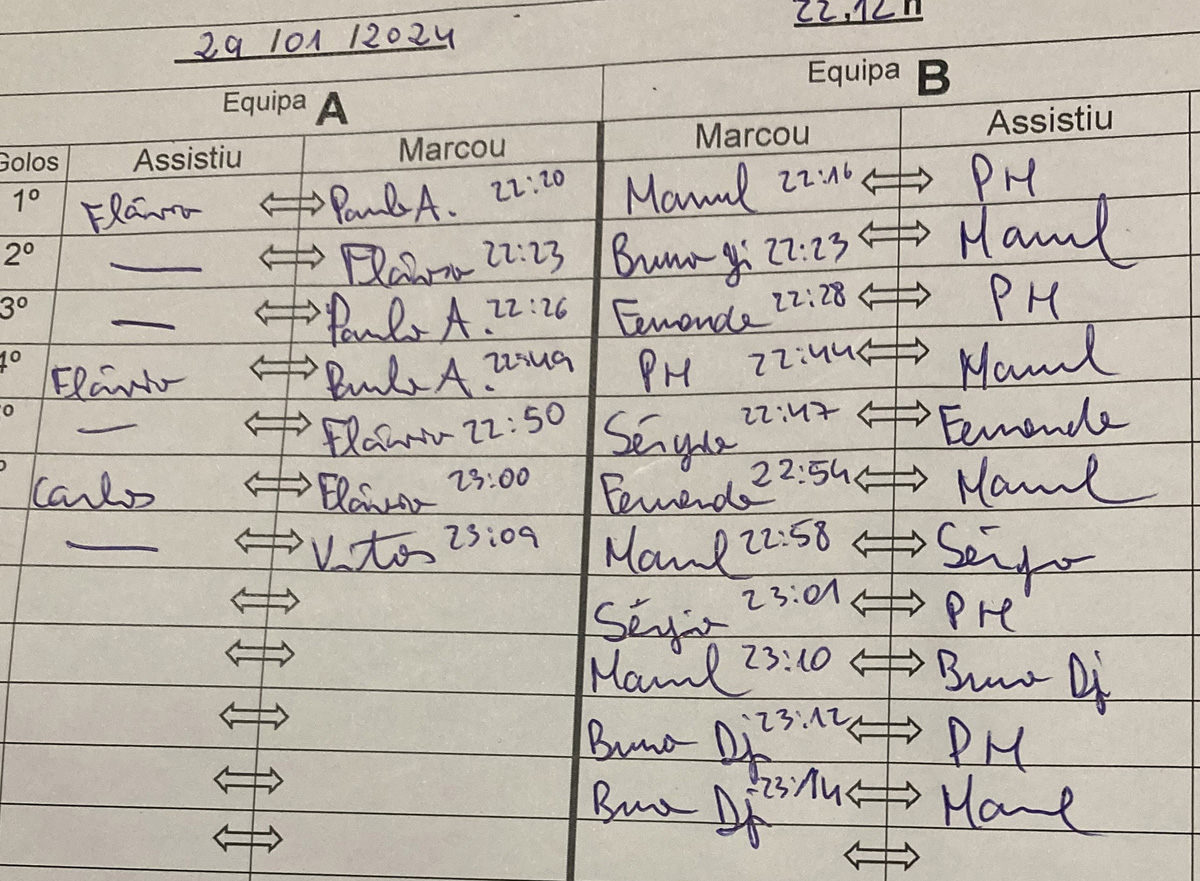 29/01/2024 22,12h
Equipa A Equipa B
Golos Assistiu Marcou Marcou Assistiu
1º Flávio ⇔ Paulo A. 22:20 Manuel 22:16 ⇔ PM
2º — ⇔ Flávio 22:23 Bruno 22:23 ⇔ Manuel
3º — ⇔ Paulo A. 22:26 Fernando 22:28 ⇔ PM
4º Flávio ⇔ Paulo A. 22:49 PM 22:44 ⇔ Manuel
º — ⇔ Flávio 22:50 Sérgio 22:47 ⇔ Fernando
º Carlos ⇔ Flávio 23:00 Fernando 22:54 ⇔ Manuel
— ⇔ 23:09 Manuel 22:58 ⇔ Sérgio
⇔ Sérgio 23:01 ⇔ PM
⇔ Manuel 23:10 ⇔ Bruno Dj
⇔ Bruno Dj 23:12 ⇔ PM
⇔ Bruno Dj 23:14 ⇔ Manuel
⇔ ⇔